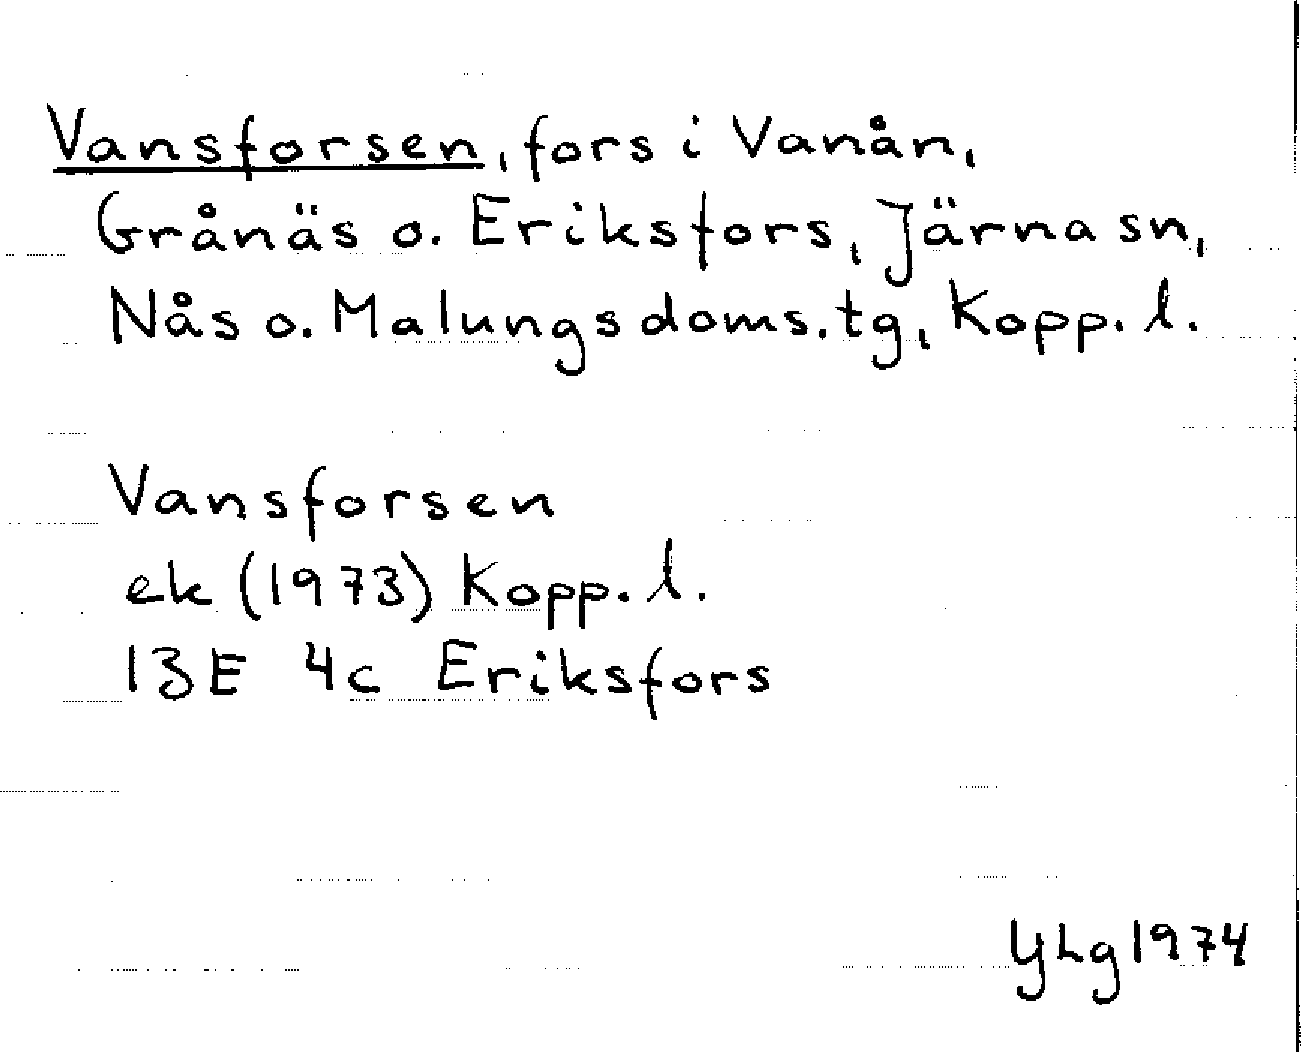 Vansforsen, fors i Vanån,
Grånäs o. Eriksfors, Järna sn,
Nås o. Malungs doms.tg, Kopp. l.
Vansforsen
ek (1973) Kopp. l.
13E 4c Eriksfors
YLg 1974